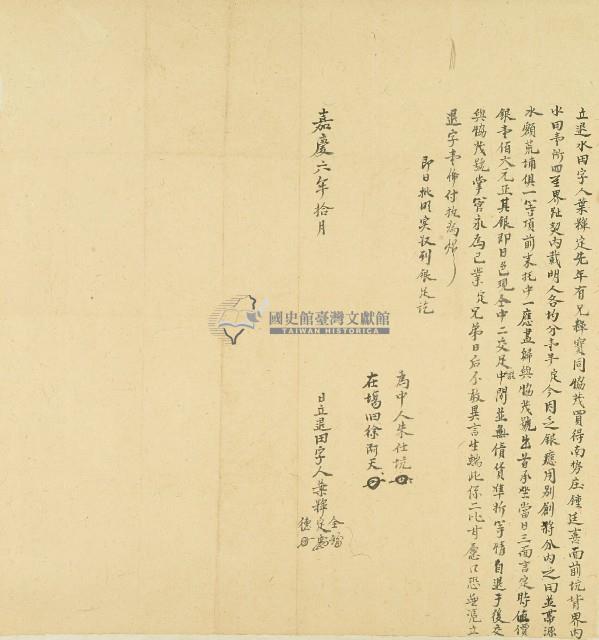 立退水田字人葉繹定先年有兄繹寶同協茂買得南勢庄鍾廷喜面前坑背界內
水田壹所四至界趾契內載明人各均分壹半定今因乏銀應用別創將分內之田並帶源
水顧荒埔俱一等項前來托中一應盡歸與協茂號出首承坐當日三面言定時值價
銀壹佰大元正其銀即日色現仝中二交足中間並無債貨準折等情自退手後交
與協茂號掌管永為己業定兄弟日后不敢異言生端此係二比甘愿口恐無憑立
退字壹帋付執為炤
即日批明實收到銀足訖
為中人朱仕坑
在場田徐阿天
嘉慶六年拾月
日立退田字人葉繹定
國史館臺灣文獻館
TAIWAN HISTORICA